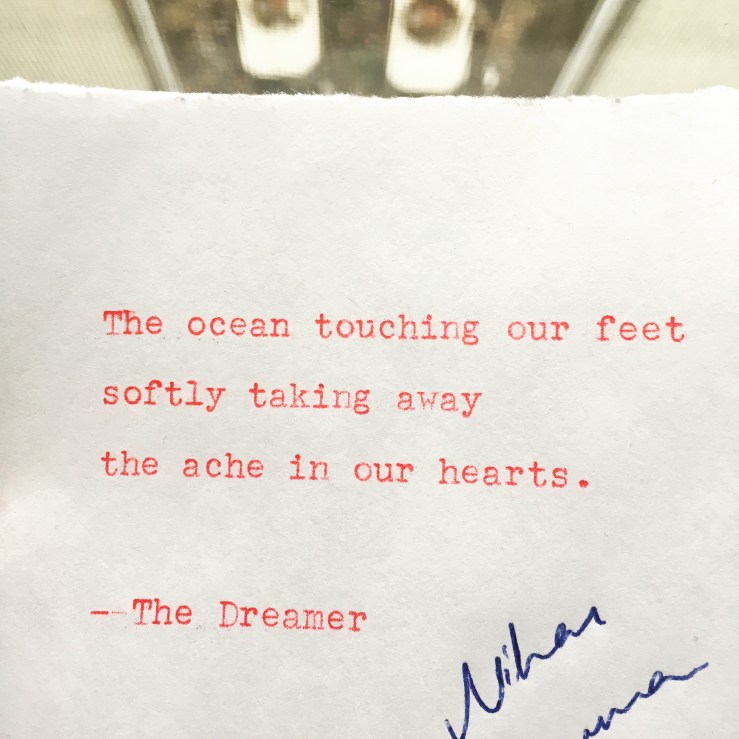 The ocean touching our feet
softly taking away
the ache in our hearts.
--The Dreamer